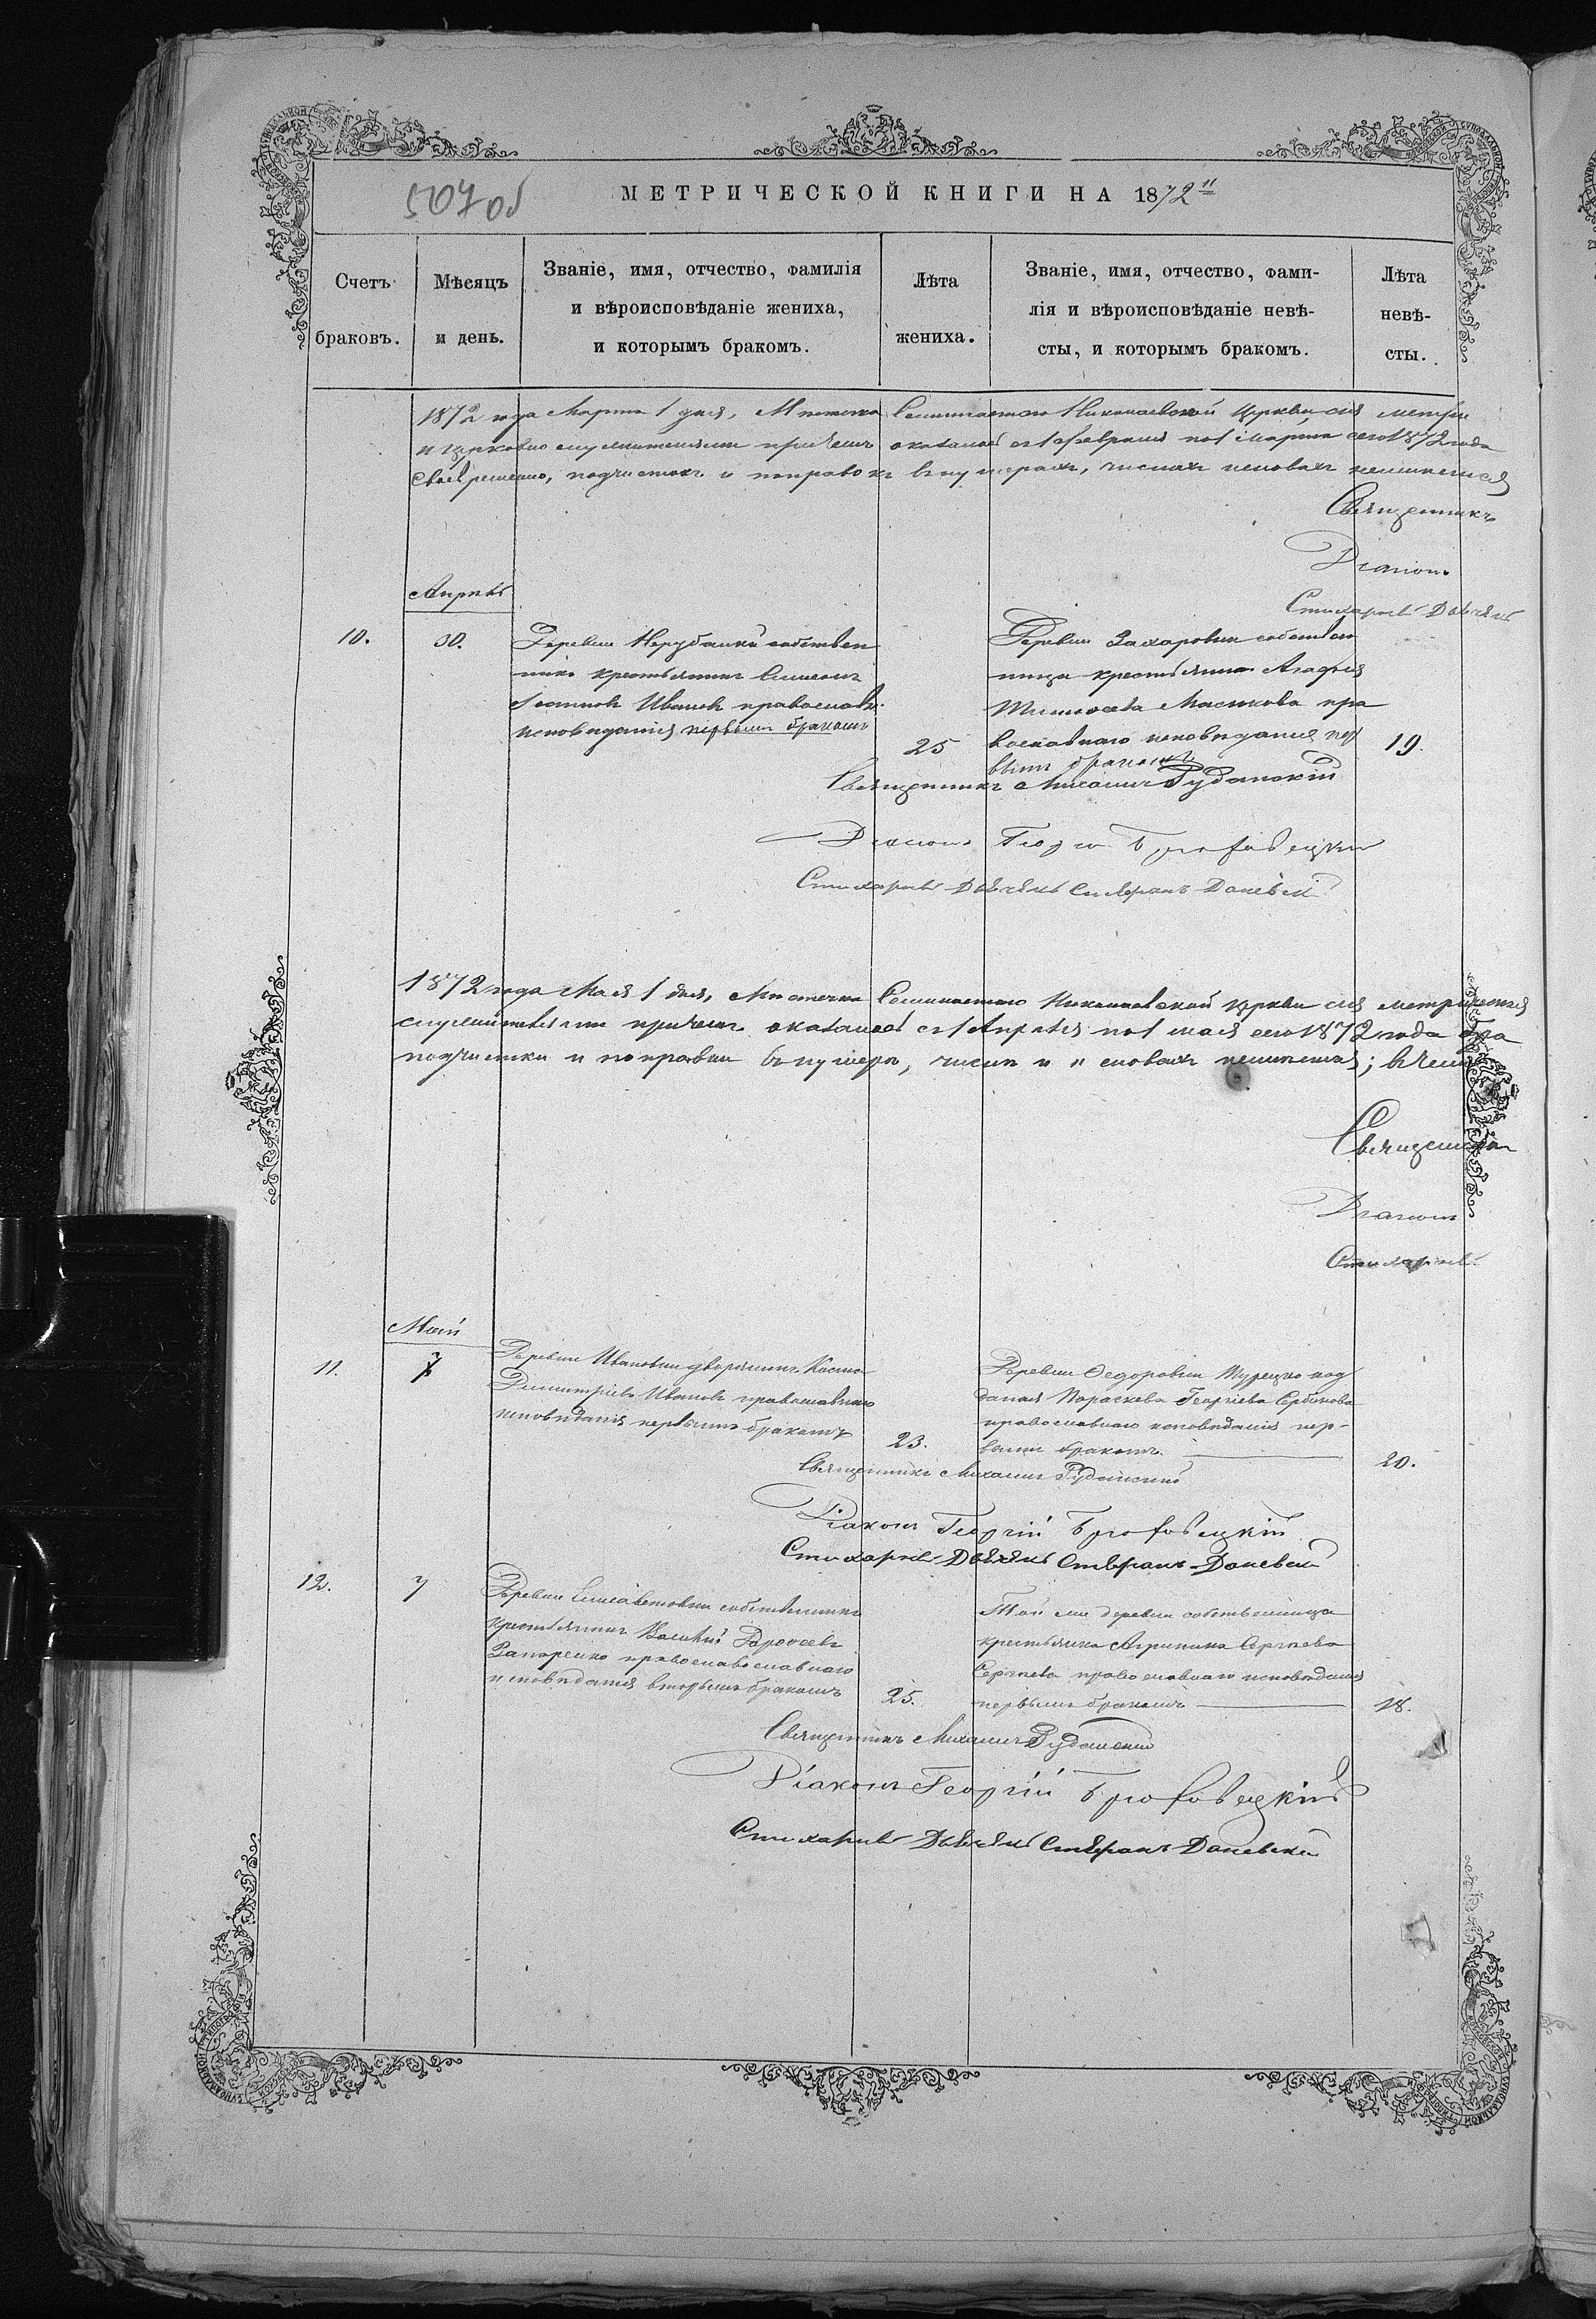 507 об
МЕТРИЧЕСКОЙ КНИГИ НА 1872
Счетъ браковъ.
Мѣсяцъ и день.
Званіе, имя, отчество, фамилія
и вѣроисповѣданіе жениха,
и которымъ бракомъ.
Лѣта жениха.
Званіе, имя, отчество, фами-
лія и вѣроисповѣданіе невѣ-
сты, и которымъ бракомъ.
Лѣта невѣ-
сты.
1872 года Марта 1 дня, Мѣстечка Николаевской Церкви, сія
и церковно служителями причемъ оказалось съ 1 февраля по 1 Марта сего 1872 года
подчистокъ и поправокъ въ нумерахъ, числахъ
Священникъ
Діаконъ
Стихарный Дьячекъ
Апрѣль
10.
30.
Деревни собствен
никъ крестьянинъ Симеонъ
Іоанновъ Ивановъ православн.
исповѣданія первымъ бракомъ
25
Деревни Захаровки собствен
ница крестьянка Агафія
Тимоѳеева Масикова пра
вославнаго исповѣданія пер
вымъ бракомъ
19.
Священникъ Михаилъ Руданскій
Діаконъ Георгій
Стихарный Дьячекъ Стефанъ Даневскі
1872 года Мая 1 дня, Мѣстечка Николаевской Церкви сія метрическая
служителями причемъ оказалось съ 1 Апрѣля по 1 мая сего 1872 года бра
подчистки и поправки въ нумерѣ, числѣ и словахъ неимѣется; въ чемъ
Священникъ
Діаконъ
Стихарный
Май
11.
7
Деревни Ивановки дворянинъ Косма
Димитріевъ Ивановъ православнаго
исповѣданія первымъ бракомъ
23.
Деревни Ѳедоровки Турецко под
даная Параскева Георгіева Сербинова
православнаго исповѣданія пер-
вымъ бракомъ.
20.
Священникъ Михаилъ Руданскій
Діаконъ Георгій
Стихарный Дьячекъ Стефанъ Даневскі
12.
7
Деревни Елисаветовки собственникъ
крестьянинъ Василій
Запоренко православославнаго
исповѣданія вторымъ бракомъ
25.
Той же деревни собственница
крестьянка Агрипина Сергѣева
Сергѣева православнаго исповѣданія
первымъ бракомъ
18.
Священникъ Михаилъ Руданскій
Діаконъ Георгій
Стихарный Дьячекъ Стефанъ Даневскій